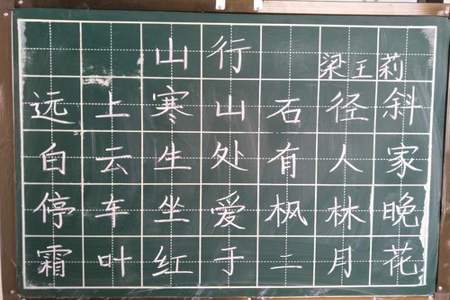 山行
梁王莉
远上寒山石径斜
白云生处有人家
停车坐爱枫林晚
霜叶红于二月花